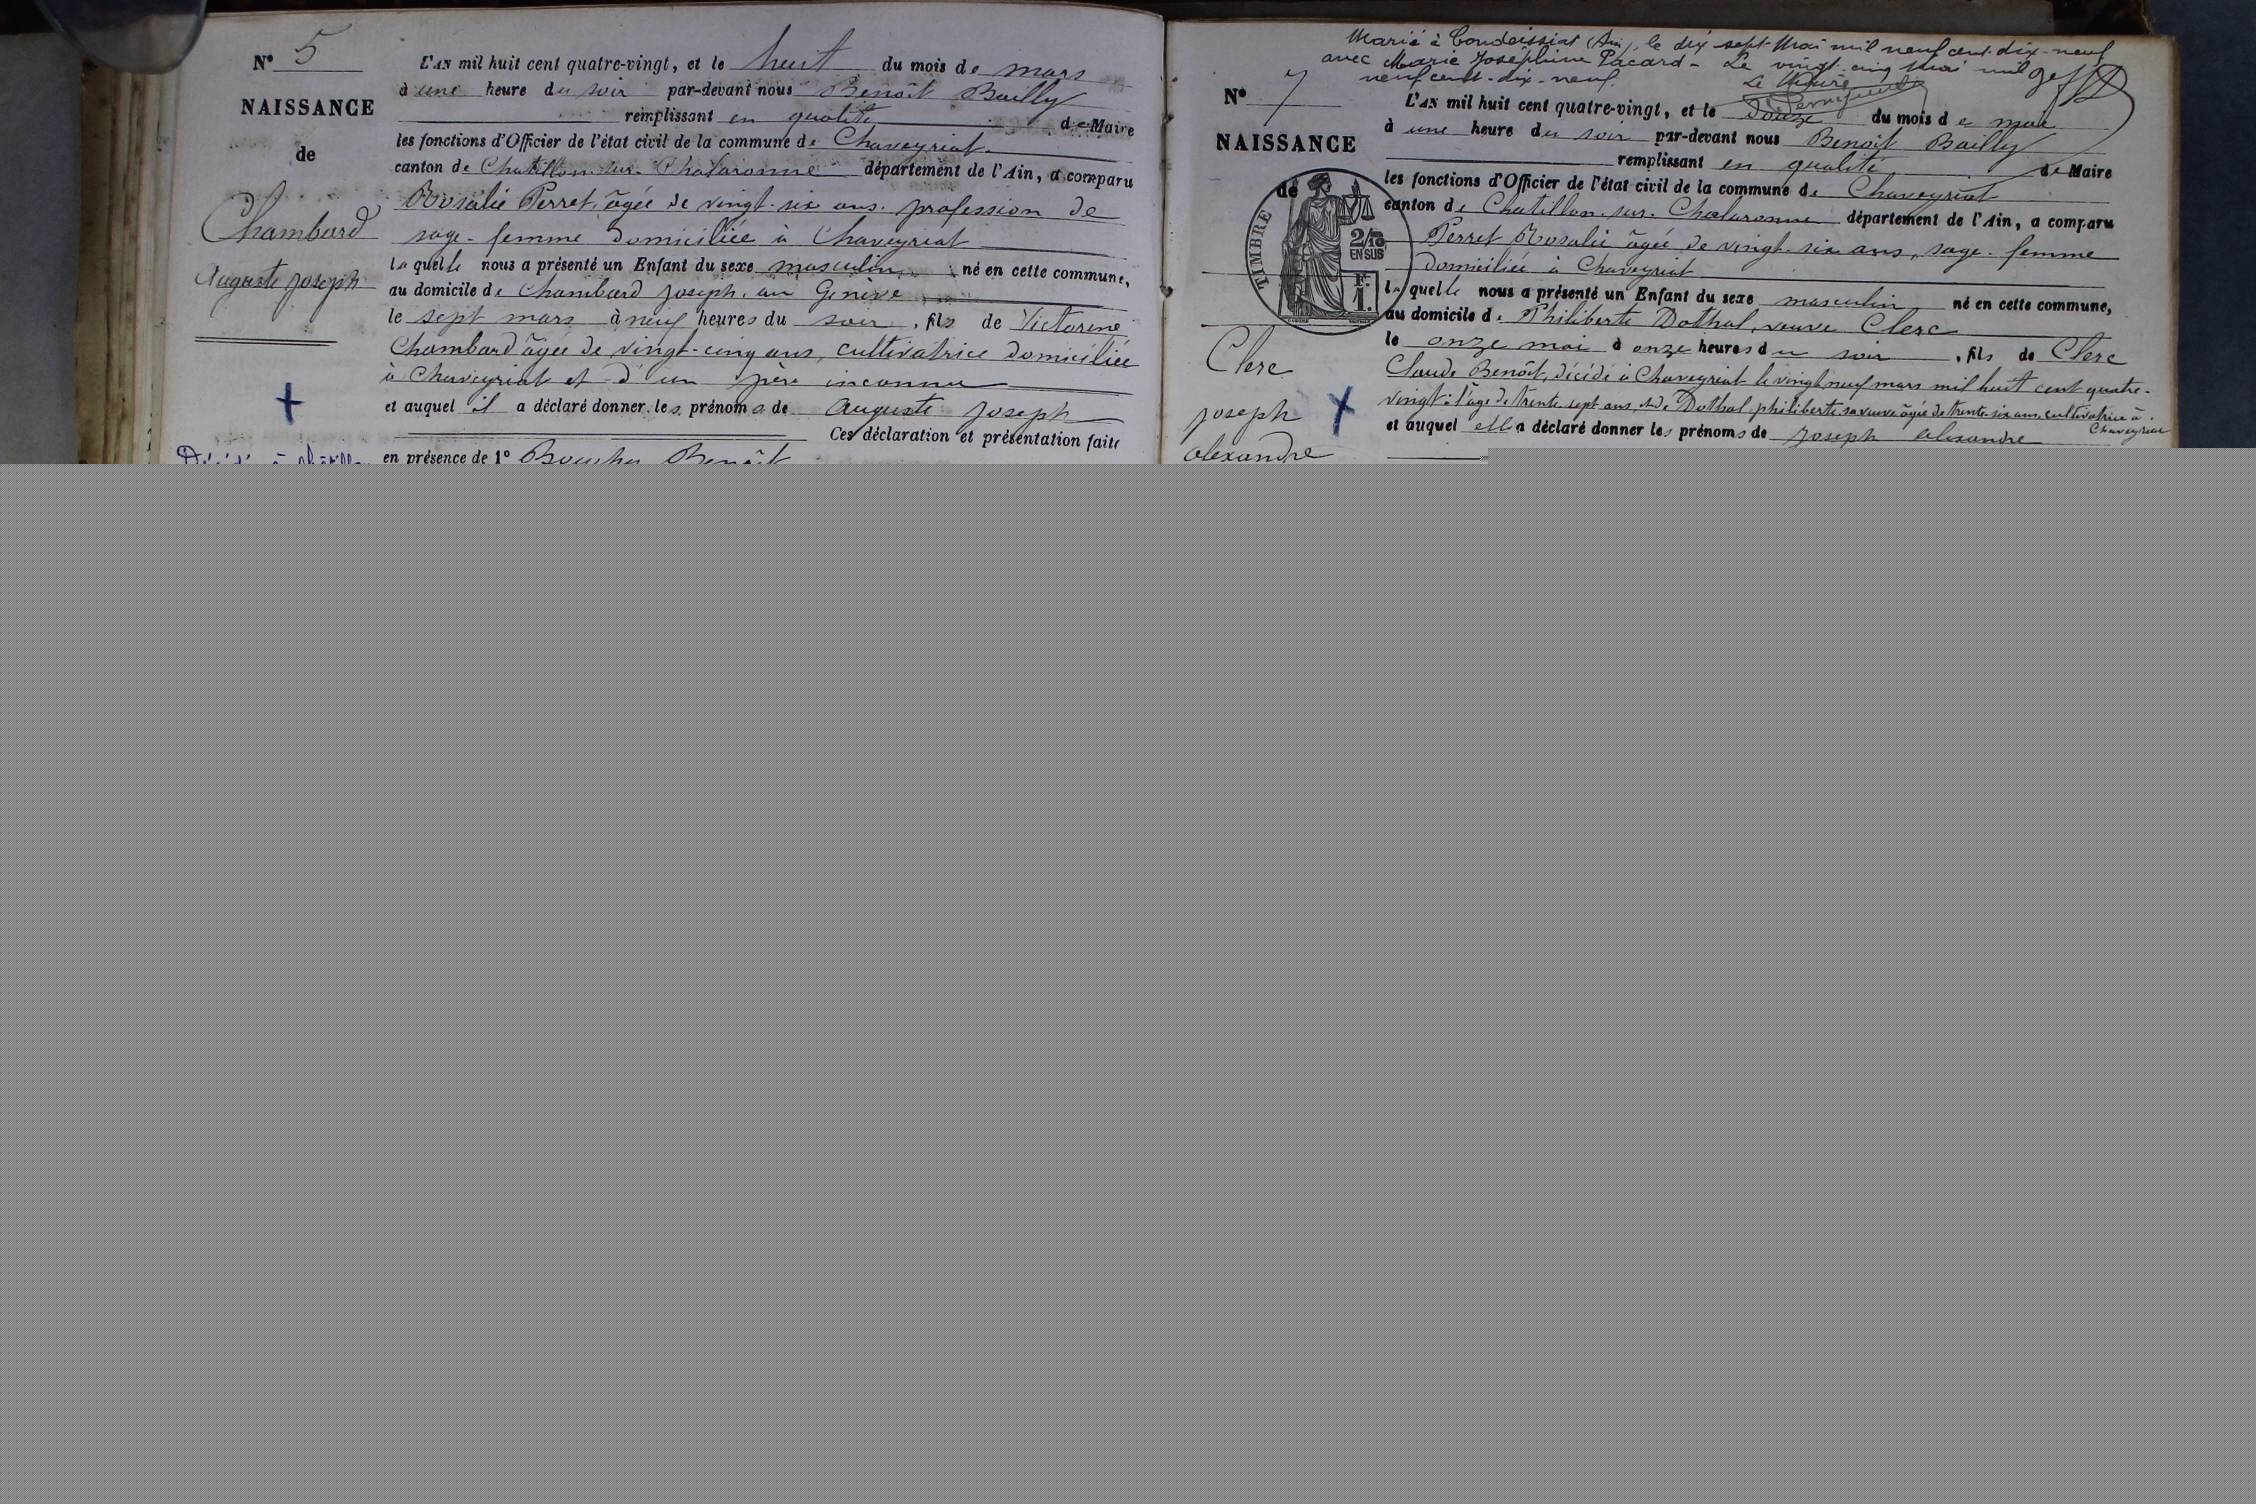 N° 5
NAISSANCE
de
Chambard
Auguste Joseph
L'AN mil huit cent quatre-vingt, et le huit du mois de mars
à une heure du soir par-devant nous Benoît Bailly
remplissant en qualité de Maire
les fonctions d'Officier de l'état civil de la commune de Chaveyriat
canton de Chatillon-sur-Chalaronne département de l'Ain, a comparu
Rosalie Perret, âgée de vingt-six ans, profession de
sage-femme domiciliée à Chaveyriat
laquelle nous a présenté un Enfant du sexe masculin, né en cette commune,
au domicile de Chambard Joseph, au Genève
le sept mars à neuf heures du soir, fils de Victorine
Chambard âgée de vingt-cinq ans, cultivatrice domiciliée
à Chaveyriat et d'un père inconnu
et auquel il a déclaré donner les prénoms de Auguste Joseph
Ces déclaration et présentation faite
en présence de 1° Benoît
Décédé à
Marié à Condeissiat (Ain), le dix-sept Mai mil neuf cent dix-neuf
avec Marie Joséphine Pacard - Le vingt-cinq Mai mil
neuf cent-dix-neuf.
Le Maire
N° 7
NAISSANCE
de
TIMBRE
2/10
EN SUS
F.
1.
Clerc
Joseph
alexandre
L'AN mil huit cent quatre-vingt, et le douze du mois de mai
à une heure du soir par-devant nous Benoit Bailly
remplissant en qualité de Maire
les fonctions d'Officier de l'état civil de la commune de Chaveyriat
canton de Chatillon-sur-Chalaronne département de l'Ain, a comparu
Perret Rosalie âgée de vingt-six ans, sage-femme
domiciliée à Chaveyriat
laquelle nous a présenté un Enfant du sexe masculin né en cette commune,
au domicile de Philiberte Dothal, veuve Clerc
le onze mai à onze heures du soir, fils de Clerc
Claude Benoît, décédé à Chaveyriat le vingt neuf mars mil huit cent quatre-
vingt à l'âge de trente sept ans, et de Dothal philiberte sa veuve âgée de trente six ans, cultivatrice à
Chaveyriat
et auquel elle a déclaré donner les prénoms de Joseph alexandre